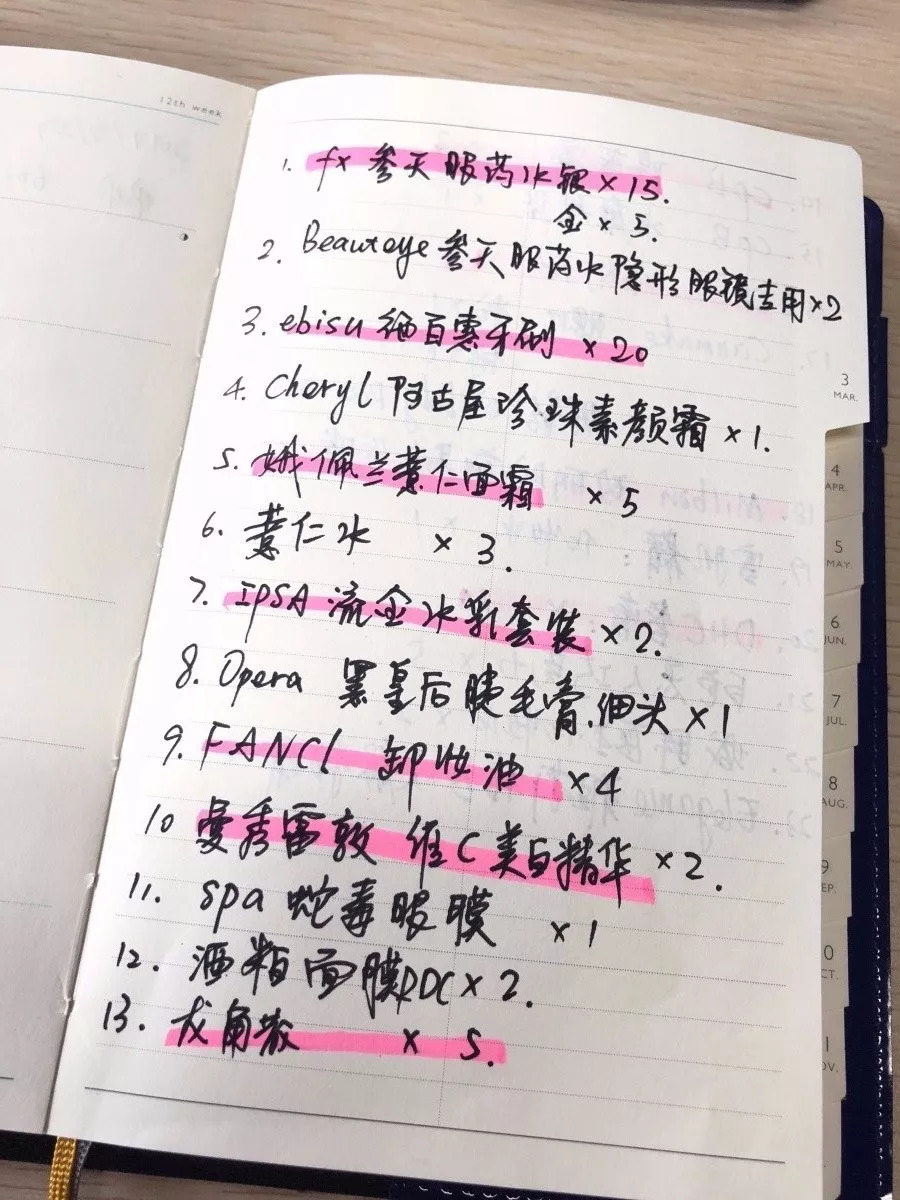 12th week
1. fx 参天眼药水银×15.
金×5.
2. Beauteye参天眼药水隐形眼镜专用×2
3. ebisu 绝百惠牙刷 ×20
4. Cheryl 阿古屋珍珠素颜霜×1.
5. 娥佩兰薏仁面霜 ×5
6. 薏仁水 ×3.
7. IPSA 流金水乳套装 ×2.
8. Opera 黑皇后睫毛膏.细头×1
9. FANCl 卸妆油 ×4
10 曼秀雷敦 维C美白精华 ×2.
11. spa 蛇毒眼膜 ×1
12. 酒粕面膜PDC×2.
13. 龙角散 × 5.
3
MAR.
4
APR.
5
MAY.
6
JUN.
7
JUL.
8
AUG.
9
EP.
0
CT.
1
OV.